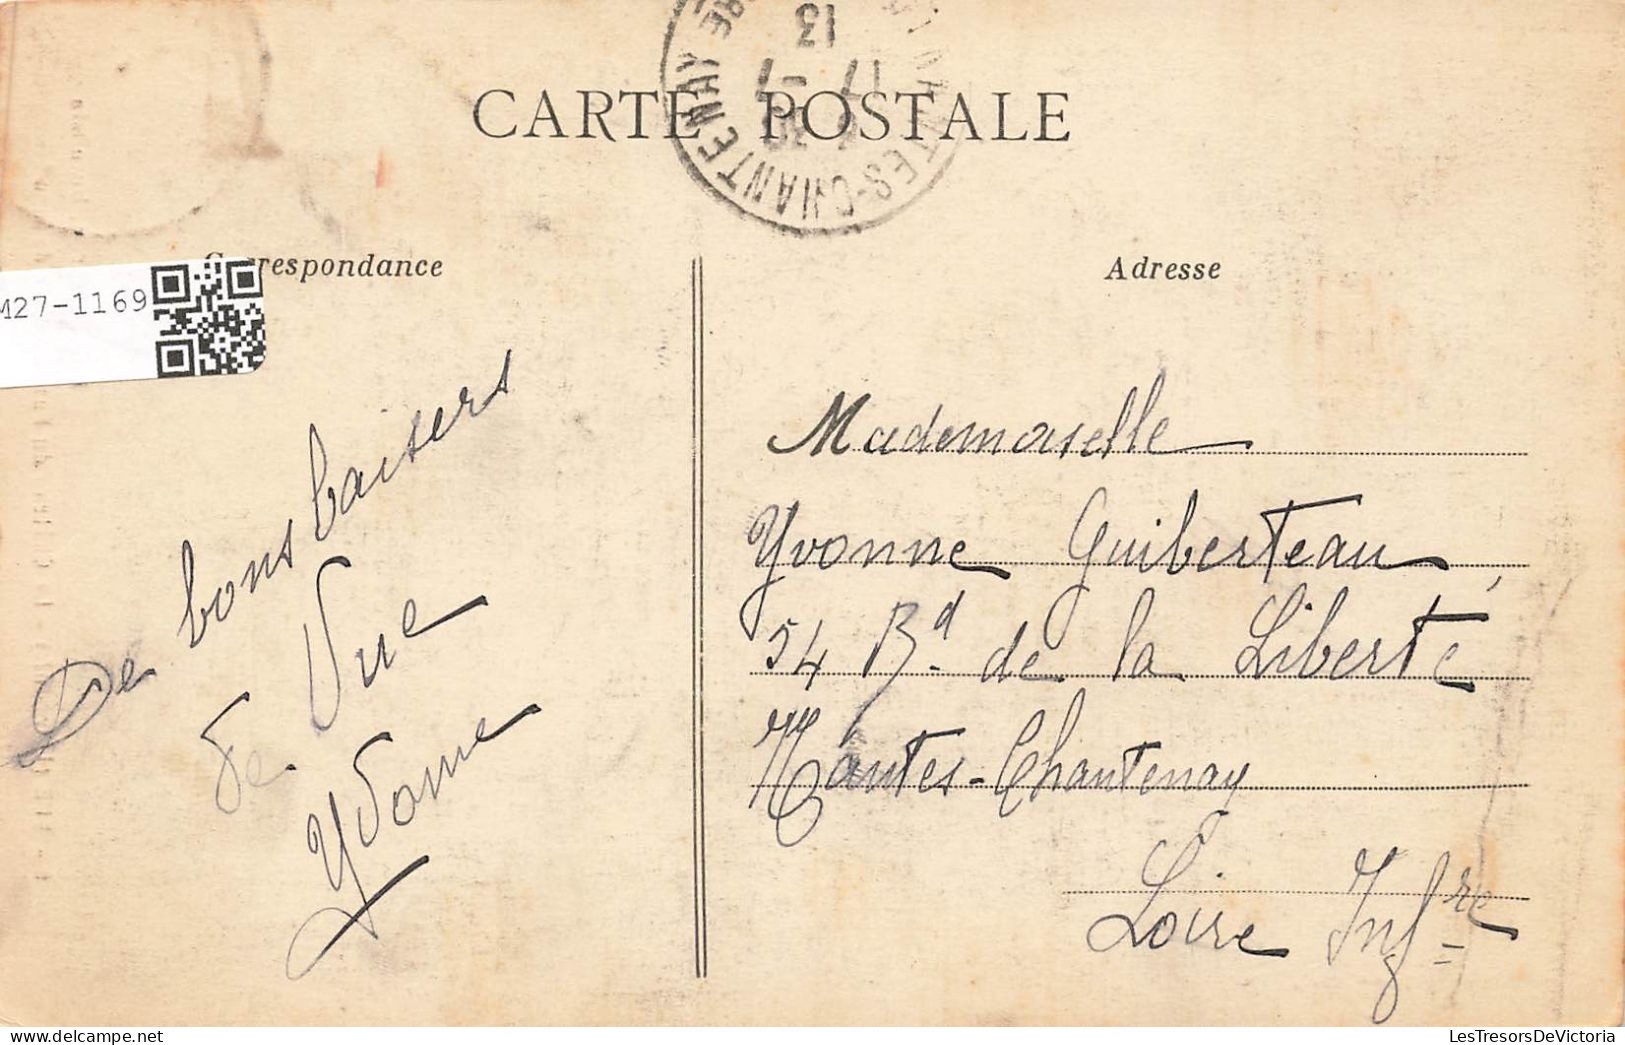 CARTE POSTALE
NANTES-CHANTENAY
17 -7
13
Correspondance
Adresse
M27-1169
De bons baisers
de Vue
Yvonne
Mademoiselle
Yvonne Guiberteau,
54 Bd. de la Liberté
Nantes-Chantenay
Loire Infre
LesTresorsDeVictoria
delcampe.net